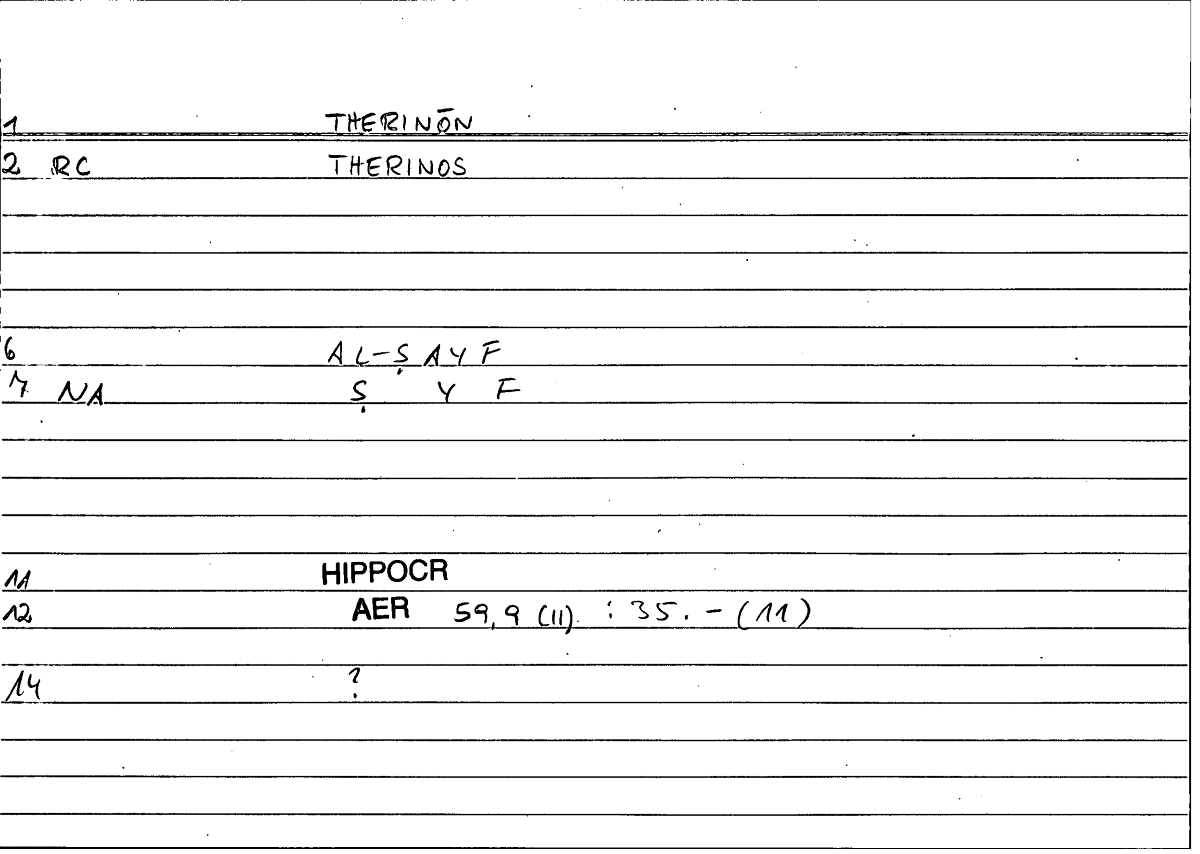 1 THERINŌN
2 RC THERINOS
6 AL-ṢAYF
7 NA Ṣ Y F
11 HIPPOCR
12 AER 59,9 (11) : 35. - (11)
14 ?